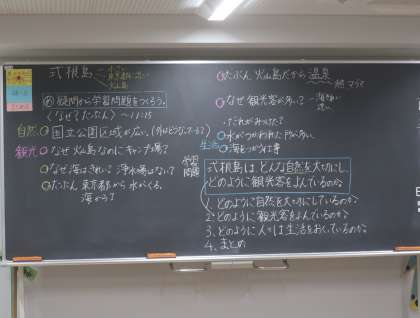 式根島
小さい
東京都に近い
火山島
め 疑問から学習問題をつくろう。
(なぜ?たぶん) ～11:15
自然 国立公園区域が広い。
観光 なぜ火山島なのにキャンプ場?
なぜ海はきれい?浄水場はない?
たぶん東京都から水がくる。
海から?
たぶん火山島だから温泉
なぜ観光客が多い?
だれがみつけた?
生活
学習問題
式根島はどんな自然を大切にし、
どのように観光客をよんでいるのか。
1. どのように自然を大切にしているのか
2. どのように観光客をよんでいるのか
3. どのように人々は生活をおくっているのか
4. まとめ